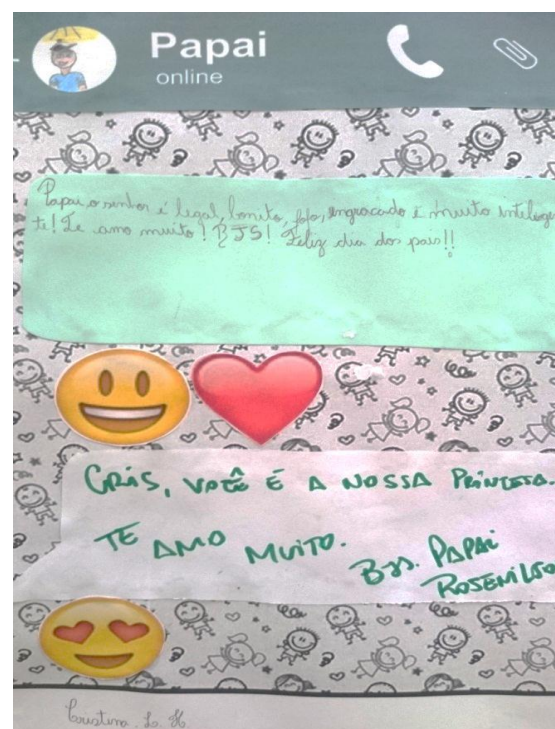 Papai
online
Papai o senhor é legal, bonito, fofo, engraçado é muito intelegen
te! Te amo muito! BJS! Feliz dia dos pais!!
CRIS, VOCÊ É A NOSSA PRINCESA.
TE AMO MUITO.
BJS. PAPAI
ROSENILSO
Cristina. L. H.